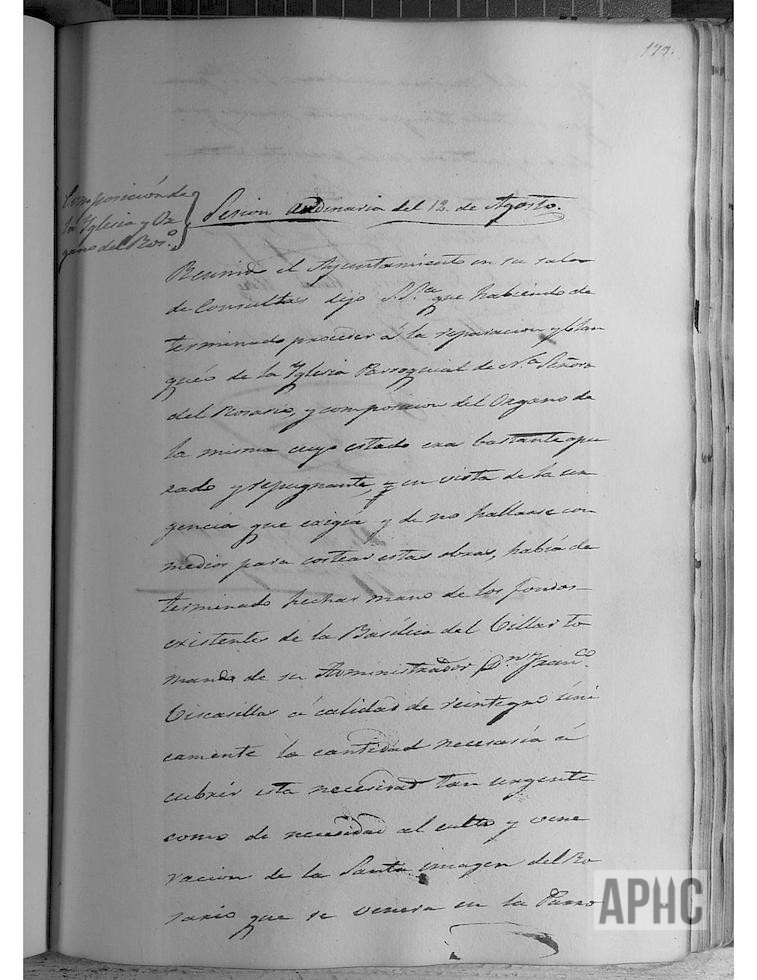 179.
Composición de
la Yglesia y Or
gano del Ros.º
Sesion ordinaria del 12 de Agosto.
Reunido el Ayuntamiento en su salon
de Consultas dijo S.Sª que habiendo de
terminado proceder á la reparacion y blan
queo de la Yglesia Parroquial de Nª Señora
del Rosario, y composicion del Organo de
la misma cuyo estado era bastante apu
rado y repugnante, y en vista de la ur
gencia que exigia y de no hallarse con
medios para costear estas obras, habia de
terminado hechar mano de los fondos
existentes de la Basílica del Villar to
mando de su Administrador Dn Franco
Viscasillas á calidad de reintegro úni
camente la cantidad necesaria á
cubrir esta necesidad tan urgente
como de necesidad al culto y vene
racion de la Santa imagen del Ro
sario que se venera en la Parro
APHC